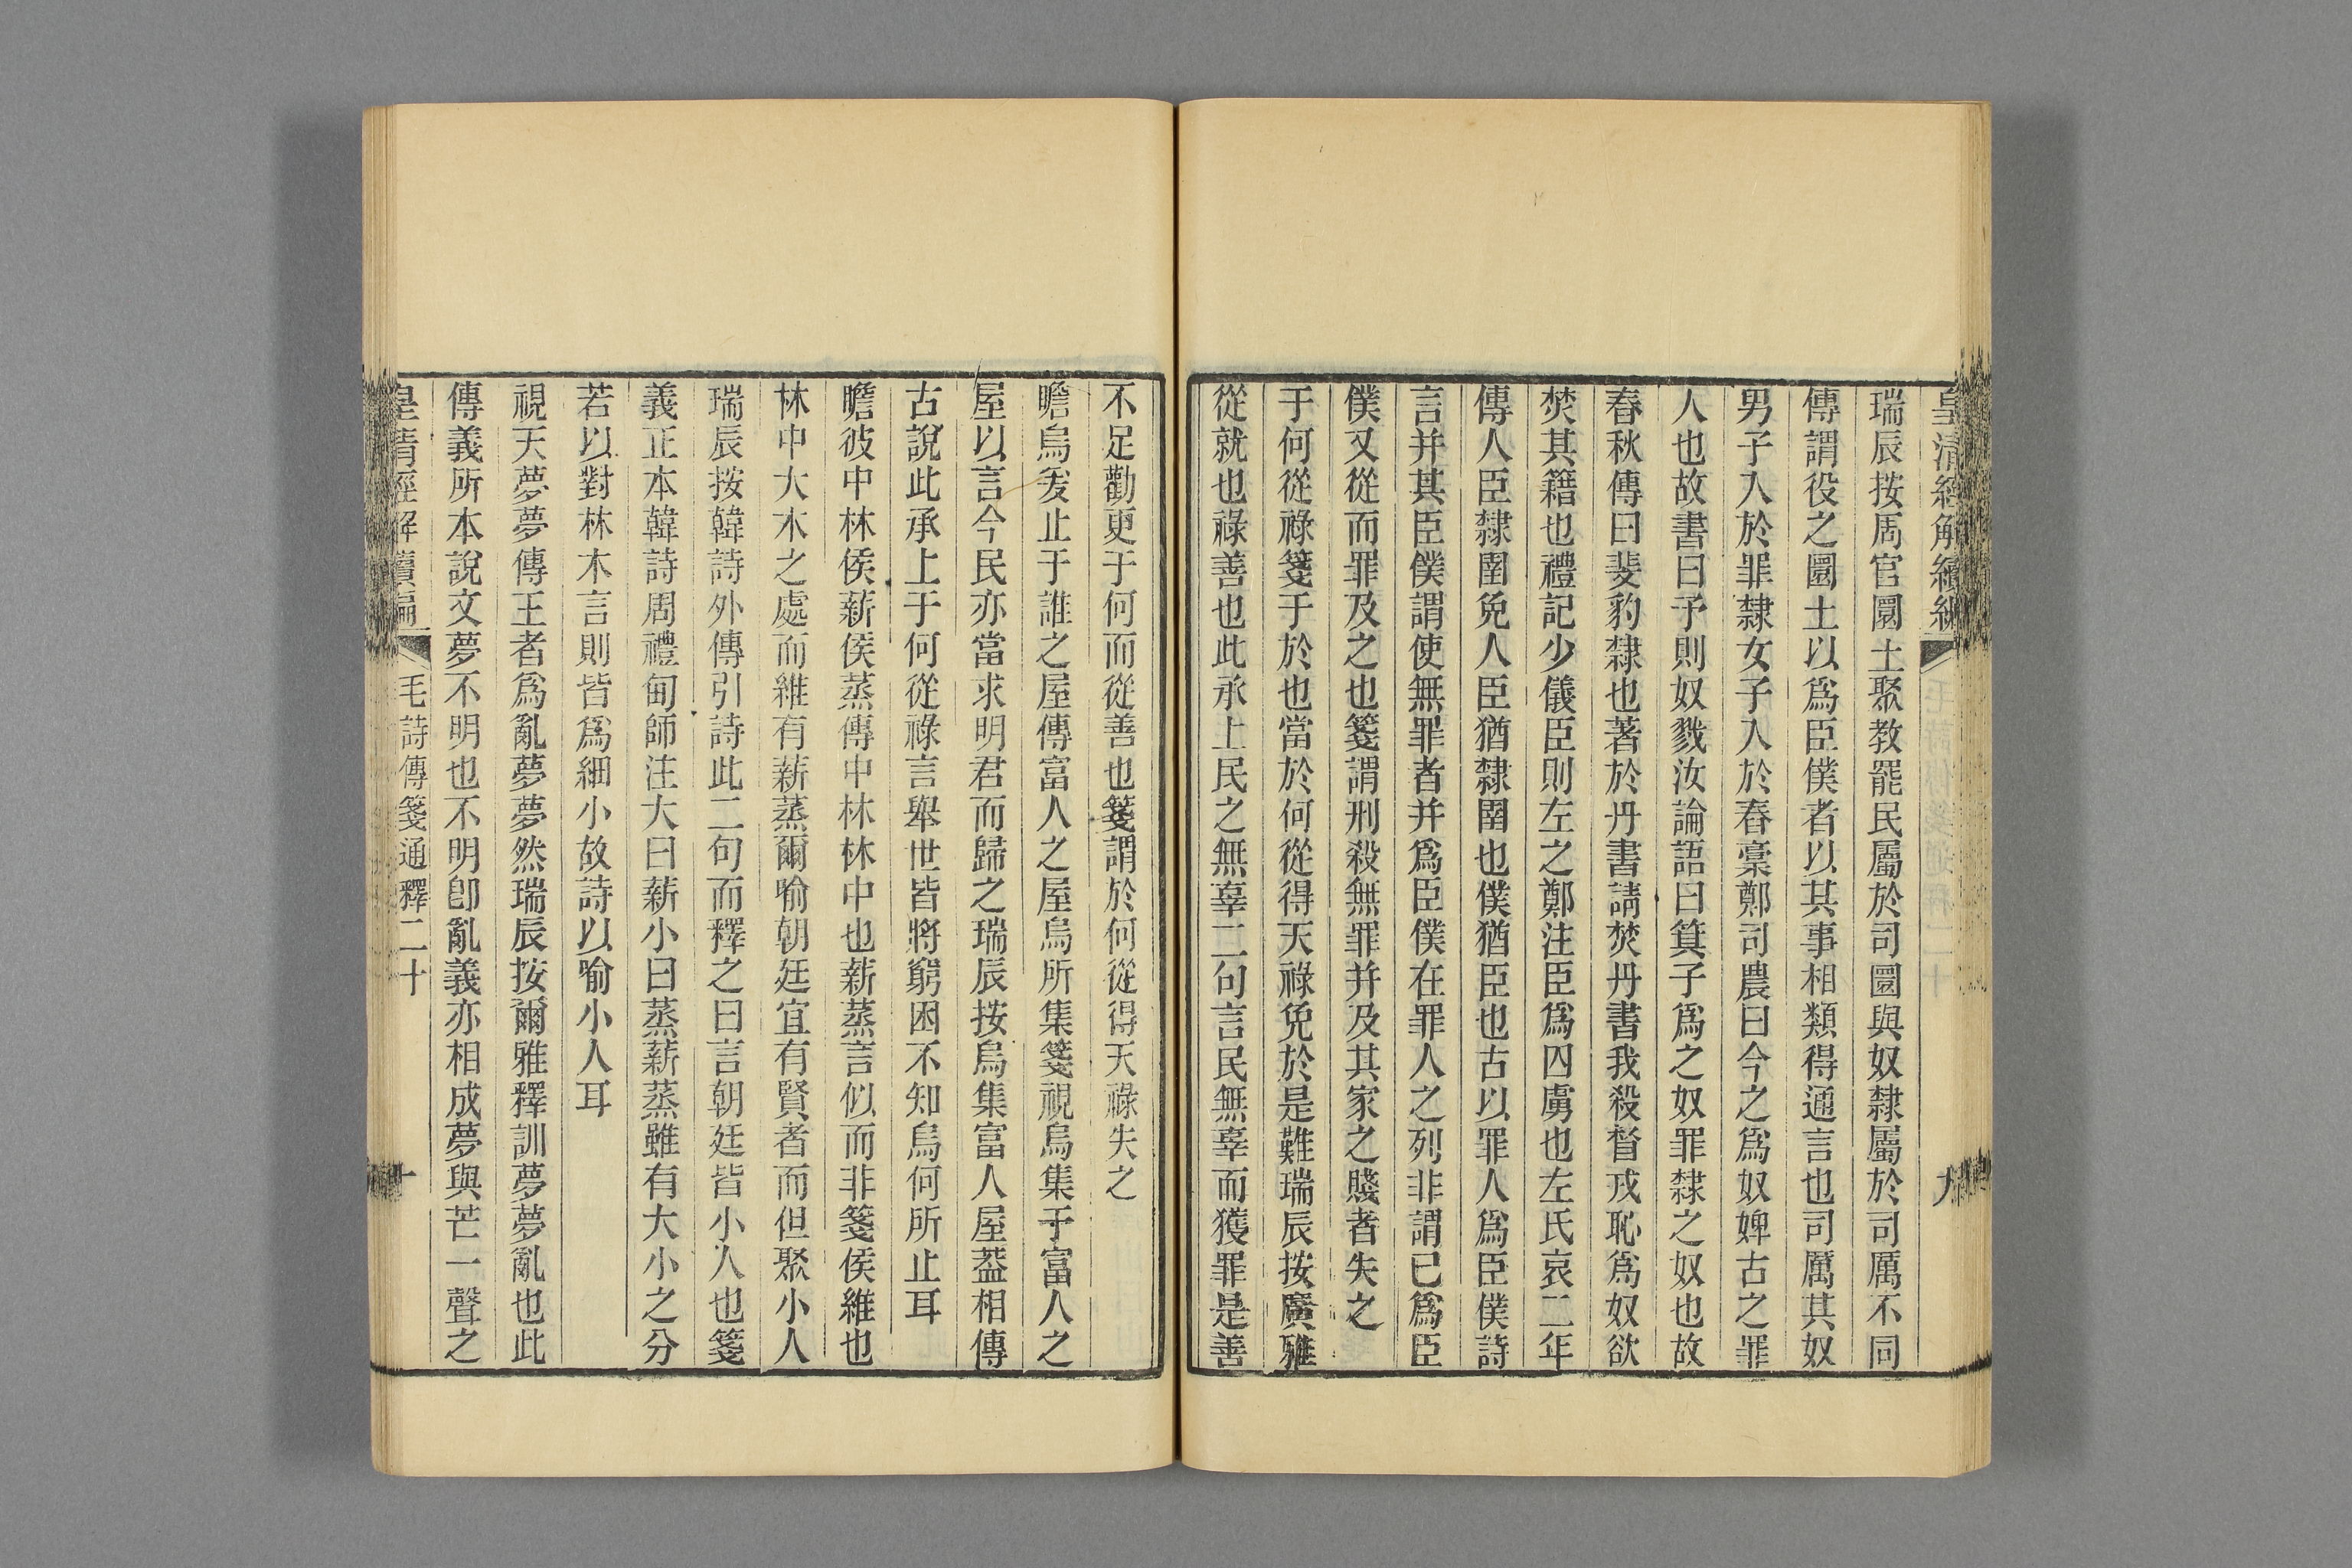 皇清經解續編
九
瑞辰按周官圜土聚教罷民屬於司圜與奴隸屬於司厲不同
傳謂役之圜土以爲臣僕者以其事相類得通言也司厲其奴
男子入於罪隸女子入於舂槀鄭司農曰今之爲奴婢古之罪
人也故書曰予則奴戮汝論語曰箕子爲之奴罪隸之奴也故
春秋傳曰斐豹隸也著於丹書請焚丹書我殺督戎恥爲奴欲
焚其籍也禮記少儀臣則左之鄭注臣爲四虜也左氏哀二年
傳人臣隸圉免人臣猶隸圉也僕猶臣也古以罪人爲臣僕詩
言并其臣僕謂使無罪者并爲臣僕在罪人之列非謂已爲臣
僕又從而罪及之也箋謂刑殺無罪并及其家之賤者失之
于何從祿箋于於也當於何從得天祿免於是難瑞辰按廣雅
從就也祿善也此承上民之無辜二句言民無辜而獲罪是善
不足勸更于何而從善也箋謂於何從得天祿失之
瞻烏爰止于誰之屋傳富人之屋烏所集箋視烏集于富人之
屋以言今民亦當求明君而歸之瑞辰按烏集富人屋葢相傳
古說此承上于何從祿言舉世皆將窮困不知烏何所止耳
瞻彼中林侯薪侯蒸傳中林林中也薪蒸言似而非箋侯維也
林中大木之處而維有薪蒸爾喻朝廷宜有賢者而但聚小人
瑞辰按韓詩外傳引詩此二句而釋之曰言朝廷皆小人也箋
義正本韓詩周禮甸師注大曰薪小曰蒸薪蒸雖有大小之分
若以對林木言則皆爲細小故詩以喻小人耳
視天夢夢傳王者爲亂夢夢然瑞辰按爾雅釋訓夢夢亂也此
傳義所本說文夢不明也不明卽亂義亦相成夢與芒一聲之
皇清經解續編
毛詩傳箋通釋二十
十